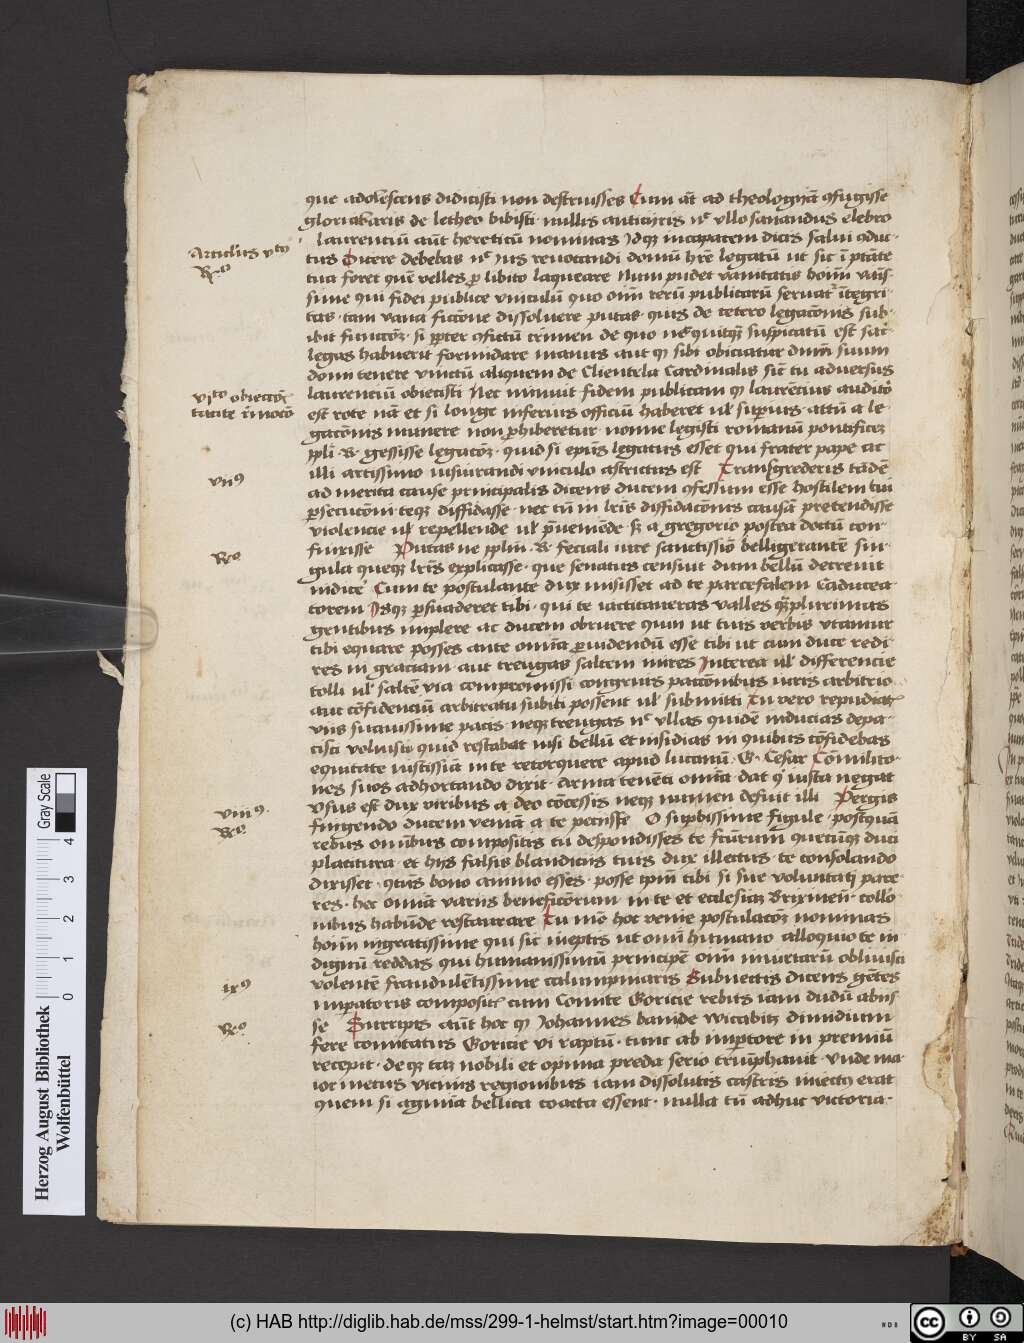 que adolescens didicisti non destruisses Cum at ad theologiā ꝯfugisse
gloriabaris de letheo bibisti nullis anticiris nc̄ ullo sanandus elebro
Laurentiū aūt hereticū nominas Idqꝫ incapacem dicis salui ꝯduc
Articulus vto
tus Dicere debebas nc̄ Jus revocandi domū hr̄e legatū ut sic ī ptāte
Rº
tua foret quē velles ꝓ libito laqueare Num pudet vanitatis
sime qui fidei publice vinculū quo oīm rerū publicarū servatr̄ ītegri
tas tam vana fictōne dissolvere putas quis de cetero legacōnis sub
ibit functōꝫ si ꝓpter ꝯfictū crimen de quo suspicatū est
legas habuerit formidare manus aut ꝙ sibi obiciatur suum
dom tenere vinctū aliquem de Clientela Cardinalis sic̄ tu adversus
vjto obiectōꝫ
laurenciū obiecisti Nec minuit fidem publicam ꝙ laurēcius auditō
tacite rīmotō
est rote nā et si longe inferius officiū haberet ul̄ superius attn̄ a le
gacōnis munere non ꝓhiberetur nonne legisti romanū pontificeꝫ
gessisse legacōꝫ quid si epūs legatus esset qui frater pape ac
illi artissimo iusiurandi vinculo astrictus est Transgrederis tādē
vijꝰ
ad merita cause principalis dicens ducem ꝯfessum esse hostilem tui
ꝑsecutōm teqꝫ diffidasse nec tn̄ in lr̄is diffidacōnis causā pretendisse
violencie ul̄ repellende ul̄ pveniēde sꝫ a gregorio postea doctū con
finxisse Putas ne feciali iure sanctissīo belligerantē sin
Rº
gula queqꝫ lr̄is explicasse que senatus censuit dum bellū decrevit
indice Cum te postulante dux misisset ad te parcefalem Caducea
torem Jsqꝫ ꝑsuaderet tibi qui te iactitaveras valles qꝫplurimas
gentibus implere ac ducem obruere quin ut tuis verbis utamur
tibi equare posses ante omīa ꝓvidendū esse tibi ut cum duce redi
res in graciam aut treugas saltem inires Interea ul̄ differencie
tolli ul̄ saltē via compromissi congruis pactōnibus iuris arbitrio
aut cōfidenciū arbitratu subiti possent ul̄ submitti tu vero repudiatꝫ
viis suavissime pacis neqꝫ treugas nc̄ ullas quidē inducias depa
cisci voluisti quid restabat nisi bellū et insidias in quibus cōfidebas
equitate iustissia in te retorquere apud lucanū G Cesar Comilito
nes suos adhortando dixit Arma tenēti omīa dat qͥ iusta negat
Usus est dux viribus a deo cōcessis neqꝫ numen defuit illi Pergis
viijꝰ
fingendo ducem veniā a te peciisse O supbissime figule postquā
Rº
rebus omībus compositis tu despondisses te fcūrum quecūqꝫ duci
placitura et hijs falsis blandiciis tuis dux illectus te consolando
dixisset qtus bono animo esses posse ipm tibi si sue voluntati pare
res hec omīa variis beneficōrum in te et ecclesiaꝫ Brixineñ collō
nibus habūde restaurare Tu mo hoc venie postulacōꝫ nominas
hoīm ingratissime qui sic ineptis ut omī humano alloquio te in
dignū reddas qui humanissimū principē oīm iniuriarū oblivisci
volentē fraudulētissime calumpniaris Subnectis dicens gētes
ixꝰ
imperatoris composit cum Comite Goricie rebus iam dudū abiis
se Surripis aūt hoc ꝙ Johannes banide wicabitꝫ dimidium
Rº
fere comitatus Goricie vi raptū tunc ab impatore in premiū
recepit deqꝫ taꝫ nobili et opima preda serio triūphavit Unde ma
ior metus vicinis regionibus iam dissolutis castris iniectꝰ erat
quem si agmīa bellica coacta essent nulla tn̄ adhuc victoria
Herzog August Bibliothek
Wolfenbüttel
0 1 2 3 4
Gray Scale
(c) HAB http://diglib.hab.de/mss/299-1-helmst/start.htm?image=00010
WDB
cc BY SA